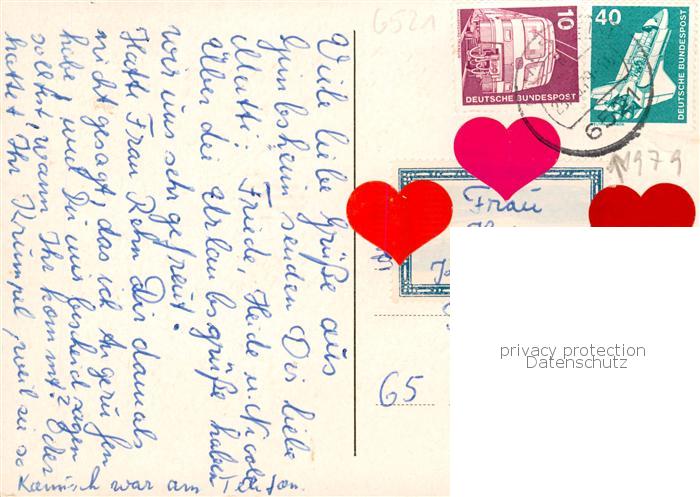 Viele liebe Grüße aus
Gimbsheim senden Dir liebe
Mutti, Friedel, Heide u. Nicole
Über die Urlaubsgrüße haben
wir uns sehr gefreut.
Hatte Frau Rehn Dir damals
nicht gesagt, das ich Angerufen
habe und Du uns bescheid sagen
solltst, wann Ihr kommt? Oder
hattet Ihr Krümpel, weil sie so
Komisch war am Telefon.
6521
10
DEUTSCHE BUNDESPOST
40
DEUTSCHE BUNDESPOST
6521
1979
Frau
65
privacy protection
Datenschutz